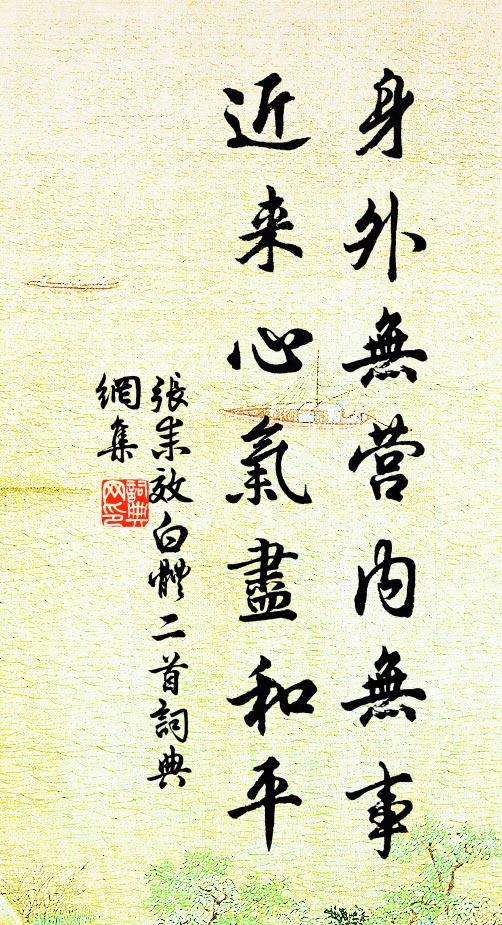 身外無营内無事
近来心氣盡和平
張耒效白體二首詞典
網集
詞典
网印